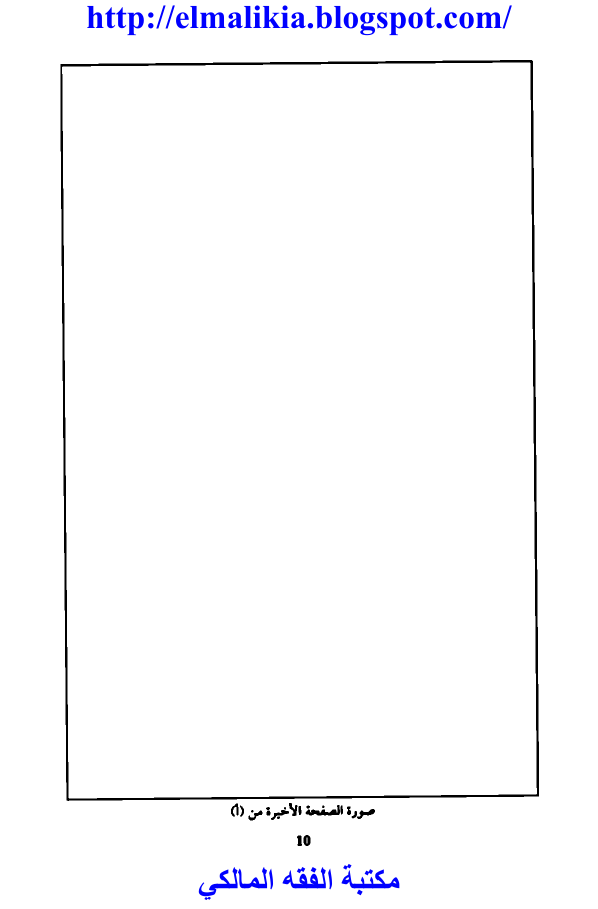 http://elmalikia.blogspot.com/
صورة الصفحة الأخيرة من (أ)
10
مكتبة الفقه المالكي